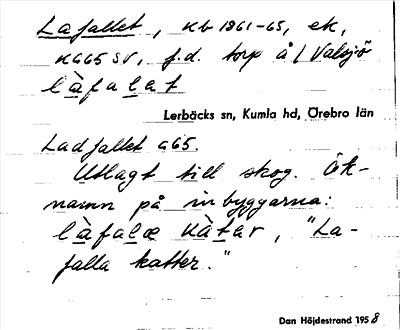 Lafallet, kb 1861-65, ek,
K665 SV, f.d. torp å / Valsjö
làfalat
Lerbäcks sn, Kumla hd, Örebro län
Ladfallet G65.
Utlagt till skog. Ök-
namn på inbyggarna:
làfalæ kàtər, "La-
falla katter."
Dan Höjdestrand 1958